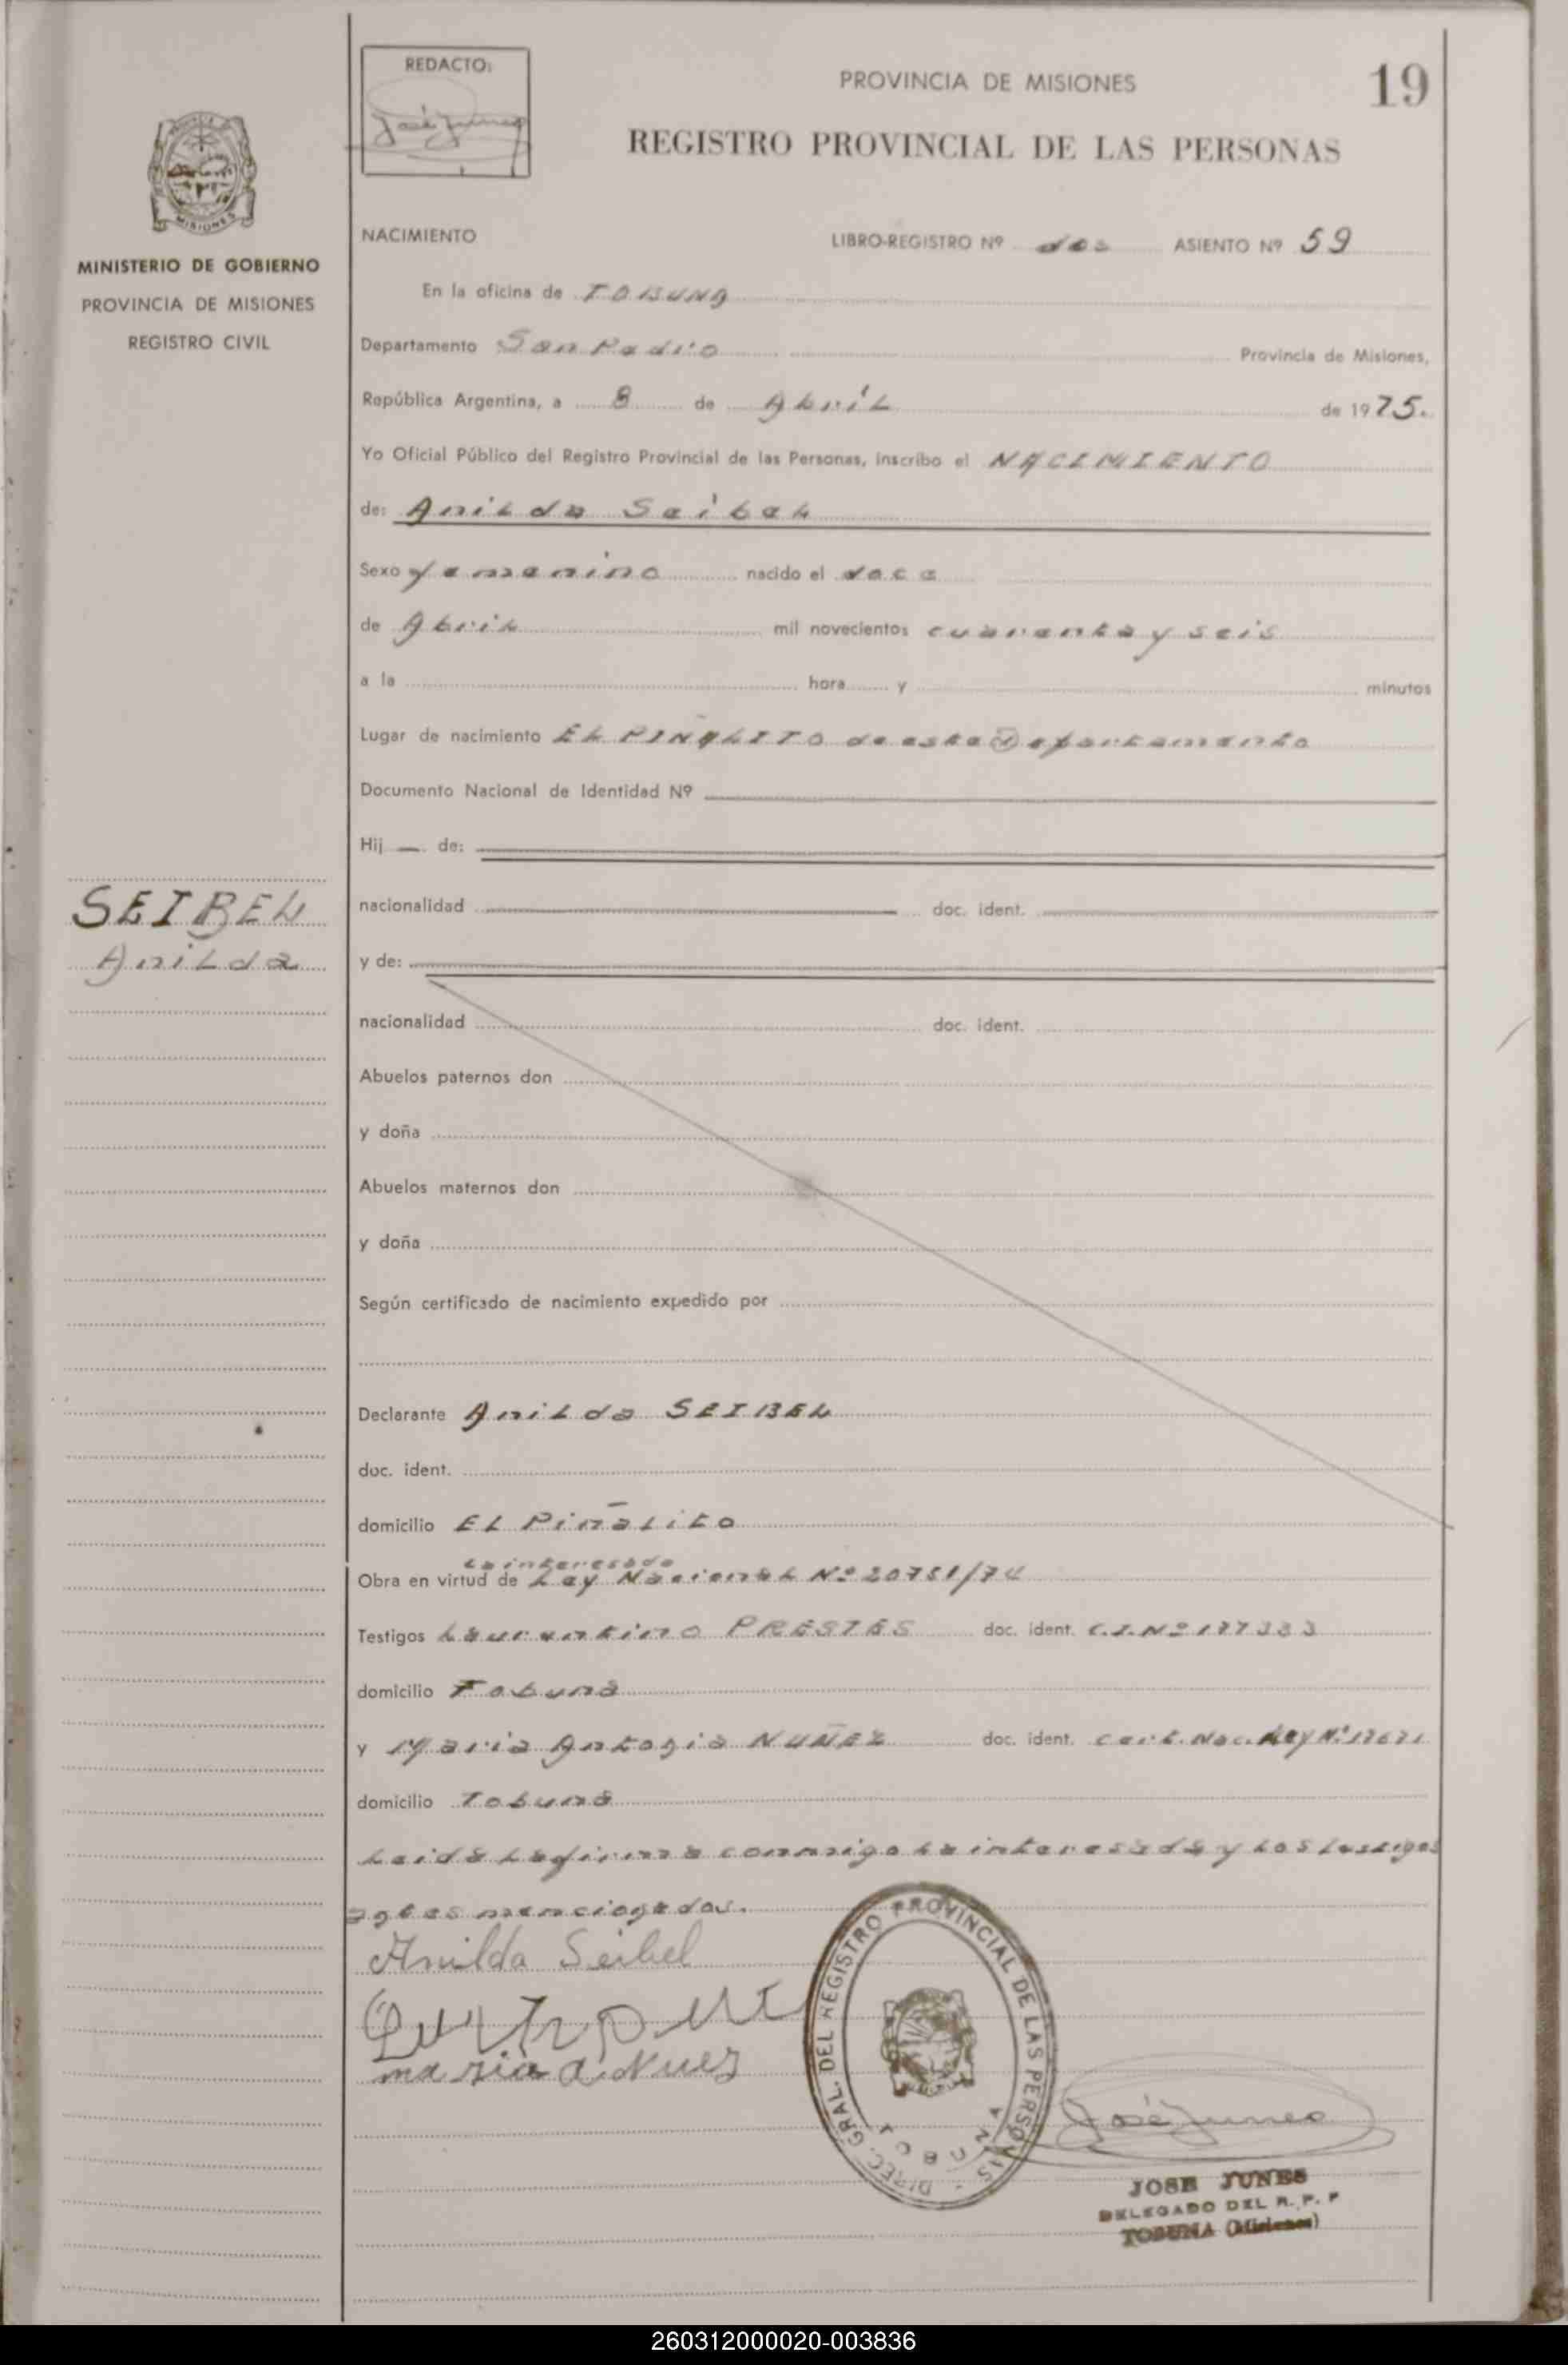 REDACTO:
José Junes
PROVINCIA DE MISIONES
19
REGISTRO PROVINCIAL DE LAS PERSONAS
MISIONES
MINISTERIO DE GOBIERNO
PROVINCIA DE MISIONES
REGISTRO CIVIL
NACIMIENTO LIBRO-REGISTRO Nº dos ASIENTO Nº 59
En la oficina de TOBUNA
Departamento San Pedro Provincia de Misiones,
República Argentina, a 8 de Abril de 1975.
Yo Oficial Público del Registro Provincial de las Personas, inscribo el NACIMIENTO
de: Anilda Seibel
Sexo femenino nacido el doce
de Abril mil novecientos cuarenta y seis
a la hora y minutos
Lugar de nacimiento EL PIÑALITO de este Departamento
Documento Nacional de Identidad Nº
Hij de:
SEIBEL
Anilda
nacionalidad doc. ident.
y de:
nacionalidad doc. ident.
Abuelos paternos don
y doña
Abuelos maternos don
y doña
Según certificado de nacimiento expedido por
Declarante Anilda SEIBEL
doc. ident.
domicilio EL Piñalito
La interesada
Obra en virtud de Ley Nacional Nº 20751/74
Testigos Laurentino PRESTES doc. ident. C.I. Nº
domicilio Tobuna
y Maria Antonia NUÑEZ doc. ident. Cert. Nac. Ley Nº 17671
domicilio Tobuna
Leida La firma conmigo La interesada y Los testigos
antes mencionados.
Anilda Seibel
maria a. Nuez
DIREC. GRAL. DEL REGISTRO PROVINCIAL DE LAS PERSONAS
TOBUNA
José Junes
JOSE JUNES
DELEGADO DEL R. P. P
TOBUNA (Misiones)
260312000020-003836